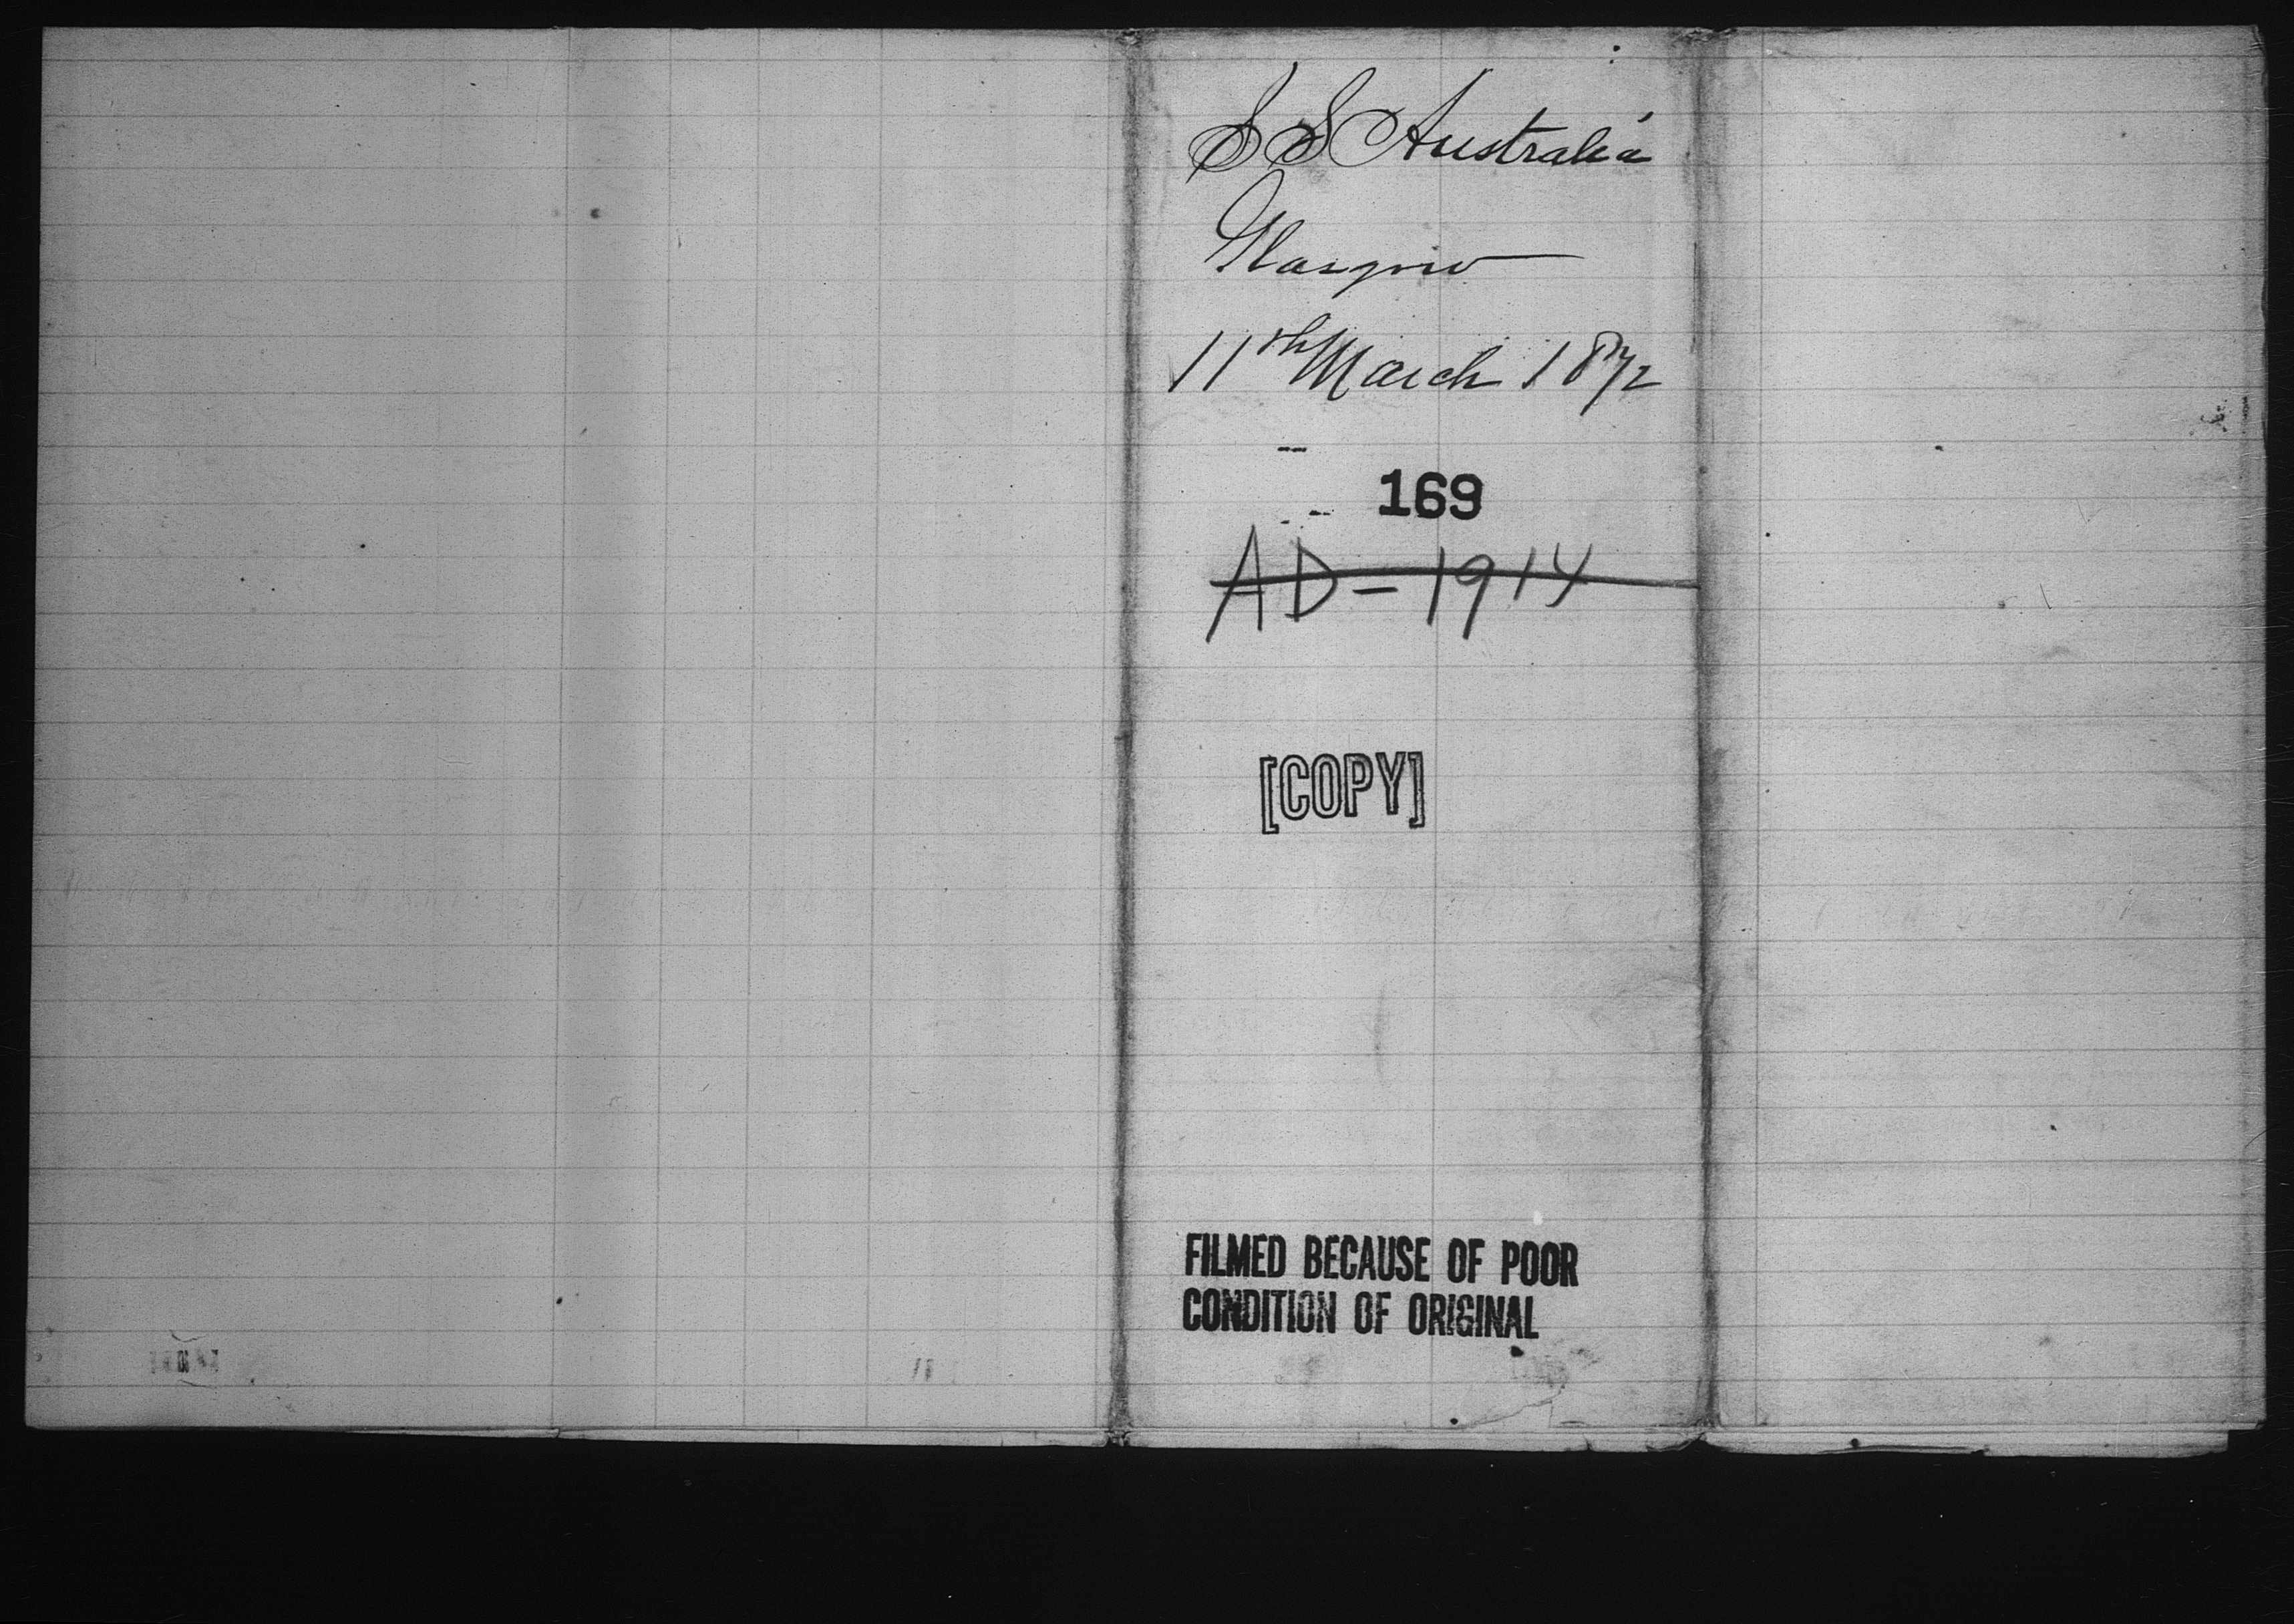 S S Australia
Glasgow
11th March 1872
169
AD-1914
[COPY]
FILMED BECAUSE OF POOR
CONDITION OF ORIGINAL